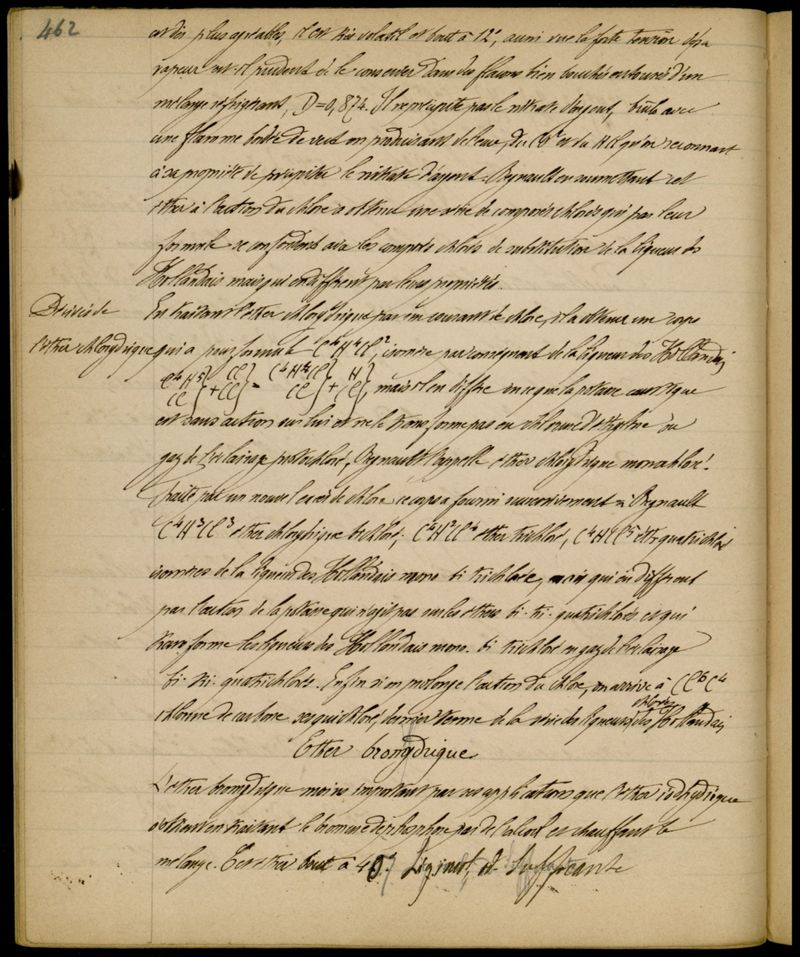 462
et des plus agréables, il est très volatil et bout à 12°, aussi vue la forte tension de sa
vapeur est-il prudent de le conserver dans des flacons bien bouchés entourés d'un
mélange réfrigérant, D=0,874. Il ne précipite pas le nitrate d'argent, brûle avec
une flamme bordée de vert en produisant de l'eau, du CO² et du HCl qu'on reconnait
à sa propriété de précipiter le nitrate d'argent. Regnault en soumettant cet
éther à l'action du chlore a obtenu une série de composés chlorés qui par leur
formule se confondent avec les composés chlorés de substitution de la liqueur des
Hollandais mais qui en diffèrent par leurs propriétés.
Dérivés de
l'éther chlorhydrique
En traitant l'éther chlorhydrique par un courant de chlore, il a obtenu un corps
qui a pour formule C⁴H⁴Cl², isomère par conséquent de la liqueur des Hollandais
C⁴H⁵ Cl} + Cl Cl} = C⁴H⁴Cl Cl} + H Cl}, mais il en diffère en ce que la potasse caustique
est sans action sur lui et ne le transforme pas en chlorure d'éthylène ou
gaz de l'éclairage protochloré, Regnault l'appelle éther chlorhydrique monochloré.
Traité par un nouvel excès de chlore ce corps a fourni successivement à Regnault
C⁴H³Cl³ éther chlorhydrique bichloré, C⁴H²Cl⁴ éther trichloré, C⁴HCl⁵ éther quatrichloré
isomères de la liqueur des Hollandais mono bi trichlorée, mais qui en diffèrent
par l'action de la potasse qui n'agit pas sur les éthers bi. tri. quatrichlorés et qui
transforme les liqueurs des Hollandais mono. bi trichloré en gaz de l'éclairage
bi. tri. quatrichlorés. Enfin si on prolonge l'action du chlore, on arrive à Cl⁶C⁴
chlorure de carbone sesquichloré, dernier terme de la série des liqueurs chlorées des Hollandais
Ether bromhydrique
L'éther bromhydrique moins important par ses applications que l'éther iodhydrique
s'obtient en traitant le bromure de phosphore par de l'alcool et chauffant le
mélange. Cet éther bout à 40°.